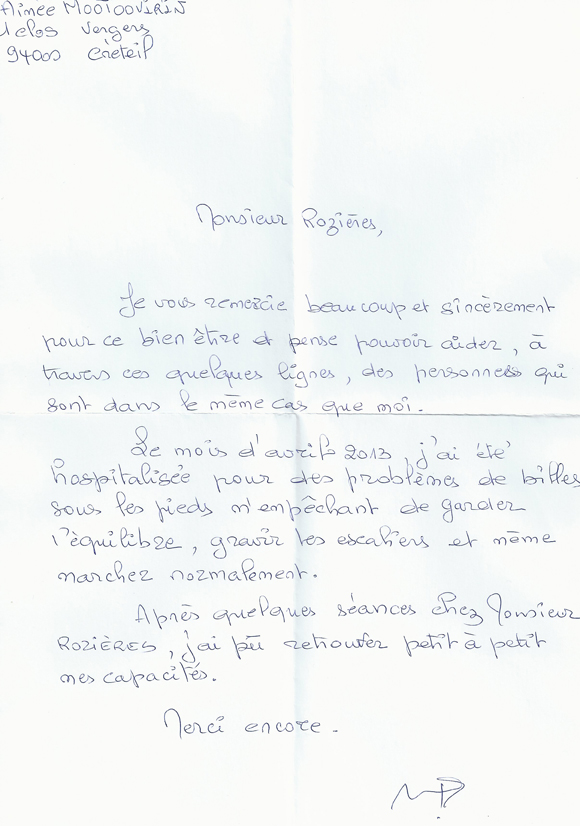 Aimée MOOTOOVIRIN
1 clos Vergers
94000 Créteil
Monsieur Rozières,
Je vous remercie beaucoup et sincèrement
pour ce bien être et pense pouvoir aider, à
travers ces quelques lignes, des personnes qui
sont dans le même cas que moi.
Le mois d'avril 2013, j'ai été
hospitalisée pour des problèmes de billes
sous les pieds m'empêchant de garder
l'équilibre, gravir les escaliers et même
marchez normalement.
Après quelques séances chez Monsieur
ROZIÈRES, j'ai pû retrouver petit à petit
mes capacités.
Merci encore.